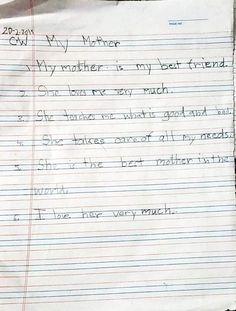 20-2-2011
CW
My Mother
1. My mother is my best friend.
2. She loves me very much.
3. She teaches me what is good and bad.
4. She takes care of all my needs.
5. She is the best mother in the
world.
6. I love her very much.